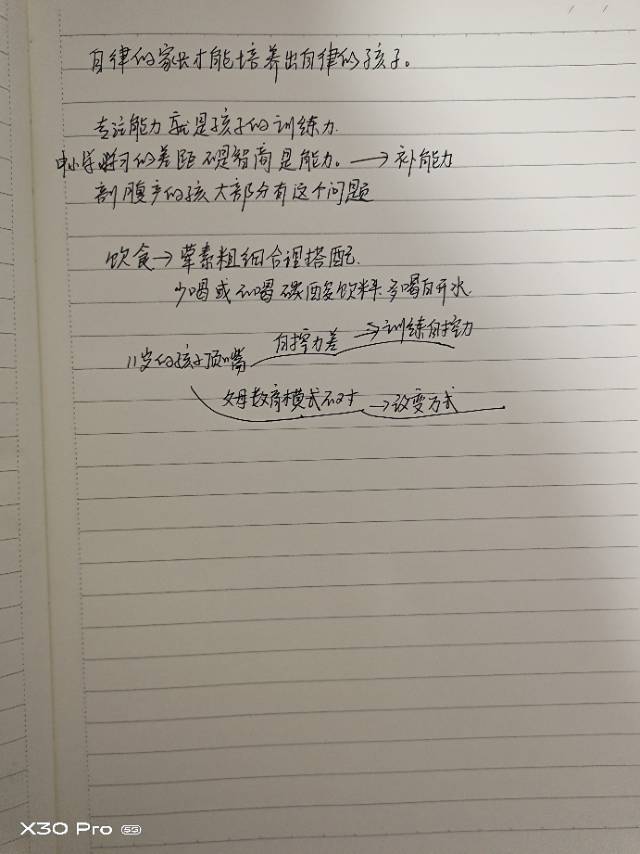 自律的家长才能培养出自律的孩子。
专注能力就是孩子的训练力.
中小学学习的差距不是智商是能力。→补能力
剖腹产的孩大部分有这个问题
饮食→荤素粗细合理搭配.
少喝或不喝碳酸饮料 多喝白开水
自控力差→训练自控力
11岁的孩子顶嘴
父母教育模式不对→改变方式
X30 Pro 5G